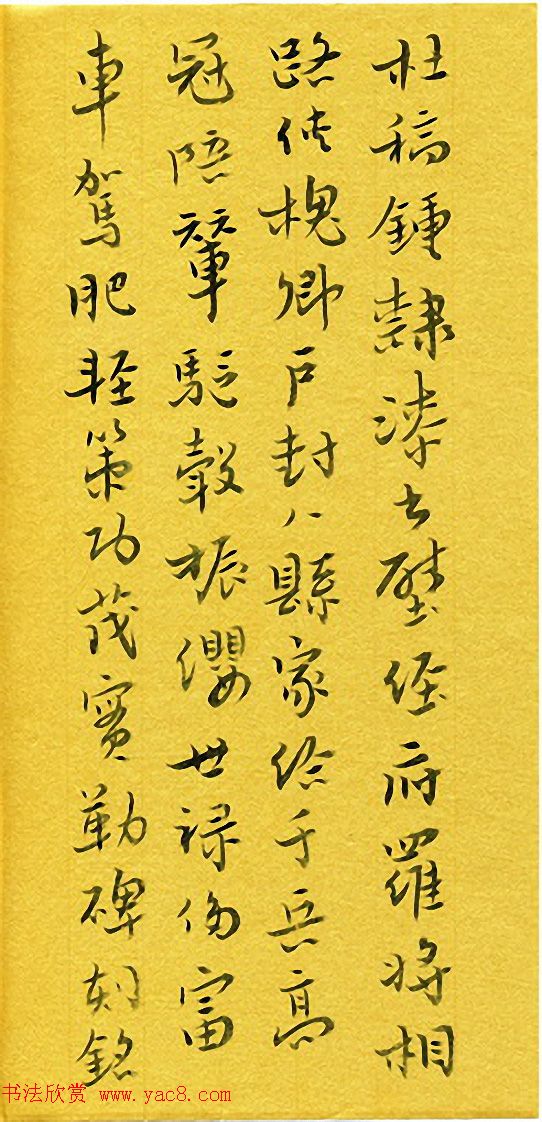 杜稿鍾隸漆书壁經府羅將相
路俠槐卿戸封八縣家給千兵高
冠陪輦駈轂振纓世禄侈富
車駕肥軽策功茂實勒碑刻銘
书法欣赏 www.yac8.com